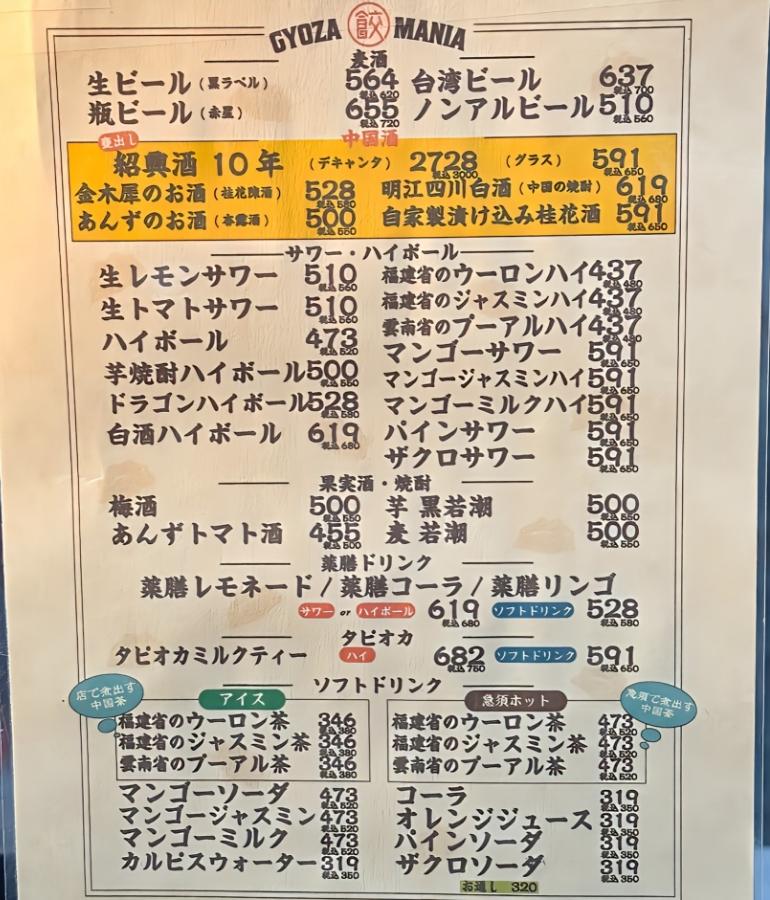 GYOZA 餃 MANIA
麦酒
生ビール（黒ラベル） 564 税込 620 台湾ビール 637 税込 700
瓶ビール（赤星） 655 税込 720 ノンアルビール 510 税込 560
中国酒
甕出し
紹興酒 10年 （デキャンタ） 2728 税込 3000 （グラス） 591 税込 650
金木犀のお酒（桂花陳酒） 528 税込 580 明江四川白酒（中国の焼酎） 619 税込 680
あんずのお酒（杏露酒） 500 税込 550 自家製漬け込み桂花酒 591 税込 650
サワー・ハイボール
生レモンサワー 510 税込 560 福建省のウーロンハイ 437 税込 480
生トマトサワー 510 税込 560 福建省のジャスミンハイ 437 税込 480
ハイボール 473 税込 520 雲南省のプーアルハイ 437 税込 480
芋焼酎ハイボール 500 税込 550 マンゴーサワー 591 税込 650
ドラゴンハイボール 528 税込 580 マンゴージャスミンハイ 591 税込 650
白酒ハイボール 619 税込 680 マンゴーミルクハイ 591 税込 650
パインサワー 591 税込 650
ザクロサワー 591 税込 650
果実酒・焼酎
梅酒 500 税込 550 芋 黒若潮 500 税込 550
あんずトマト酒 455 税込 500 麦 若潮 500 税込 550
薬膳ドリンク
薬膳レモネード / 薬膳コーラ / 薬膳リンゴ
サワー or ハイボール 619 税込 680 ソフトドリンク 528 税込 580
タピオカ
タピオカミルクティー ハイ 682 税込 750 ソフトドリンク 591 税込 650
ソフトドリンク
店で煮出す
中国茶
アイス
福建省のウーロン茶 346 税込 380
福建省のジャスミン茶 346 税込 380
雲南省のプーアル茶 346 税込 380
急須ホット
急須で煮出す
中国茶
福建省のウーロン茶 473 税込 520
福建省のジャスミン茶 473 税込 520
雲南省のプーアル茶 473 税込 520
マンゴーソーダ 473 税込 520 コーラ 319 税込 350
マンゴージャスミン 473 税込 520 オレンジジュース 319 税込 350
マンゴーミルク 473 税込 520 パインソーダ 319 税込 350
カルピスウォーター 319 税込 350 ザクロソーダ 319 税込 350
お通し 320